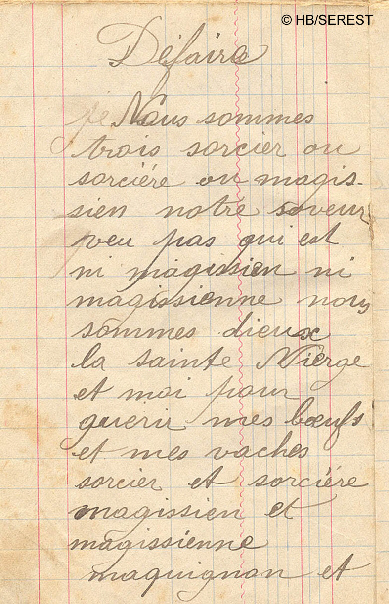 © HB/SEREST
Défaire
je Nous sommes
trois sorcier ou
sorciére ou magis-
sien notre saveur
veu pas qui est
ni magissien ni
magissienne nous
sommes dieux
la sainte Vierge
et moi pour
guerir mes bœufs
et mes vaches
sorcier et sorciére
magissien et
magissienne
maquignon et